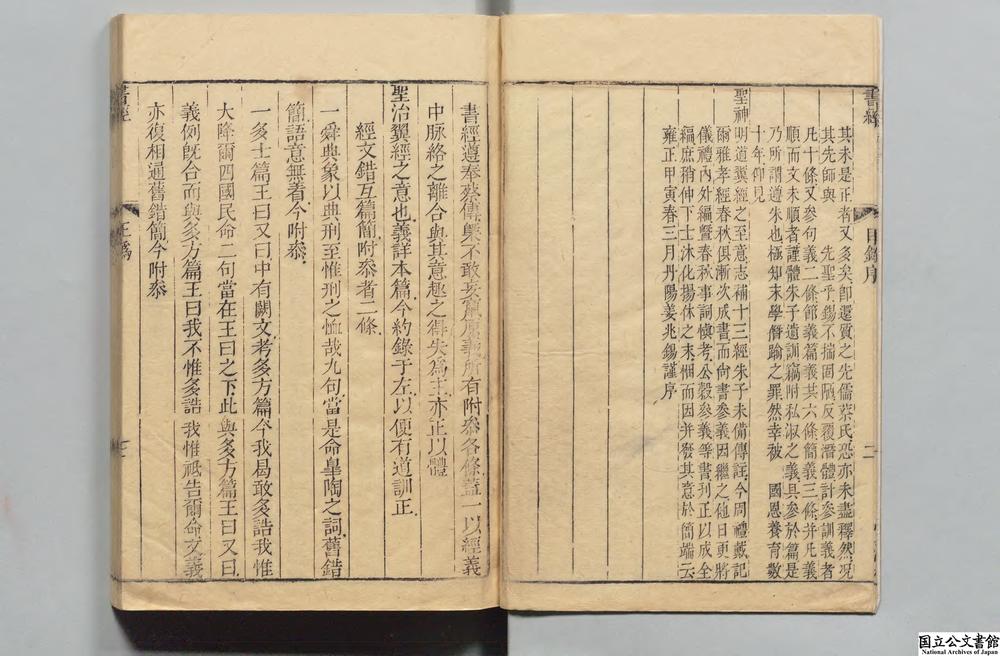 其未是正者又多矣卽還質之先儒蔡氏恐亦未盡釋然况
其先師與 先聖乎錫不揣固陋反覆潛體計參訓義者
凡十條又參句義二條節義篇義共六條簡義三條并凡義
順而文未順者謹體朱子遺訓竊附私淑之義具參於篇是
乃所謂遵朱也極知末學僭踰之罪然幸被 國恩養育數
十年仰見
聖神明道翼經之至意志補十三經朱子未備傳註今周禮戴記
爾雅孝經春秋俱漸次成書而尙書參義因繼之他日更將
儀禮內外編曁春秋事詞愼考公穀參義等書刋正以成全
編庶稍伸下士沐化揚休之末悃而因并發其意於簡端云
雍正甲寅春三月丹陽姜兆錫謹序
書經
目錄序
二
書經遵奉蔡傳槩不敢妄竄原義所有附叅各條葢一以經義
中脉絡之離合與其意趣之得失爲主亦正以體
聖治翼經之意也義詳本篇今約錄于左以便有道訓正
經文錯互篇簡附叅者二條
一舜典象以典刑至惟刑之恤哉九句當是命皐陶之詞舊錯
簡語意無着今附叅
一多士篇王曰又曰中有闕文考多方篇今我曷敢多誥我惟
大降爾四國民命二句當在王曰之下此與多方篇王曰又曰
義例旣合而與多方篇王曰我不惟多誥我惟祗告爾命文義
亦復相通舊錯簡今附叅
書經
七
国立公文書館
National Archives of Japan